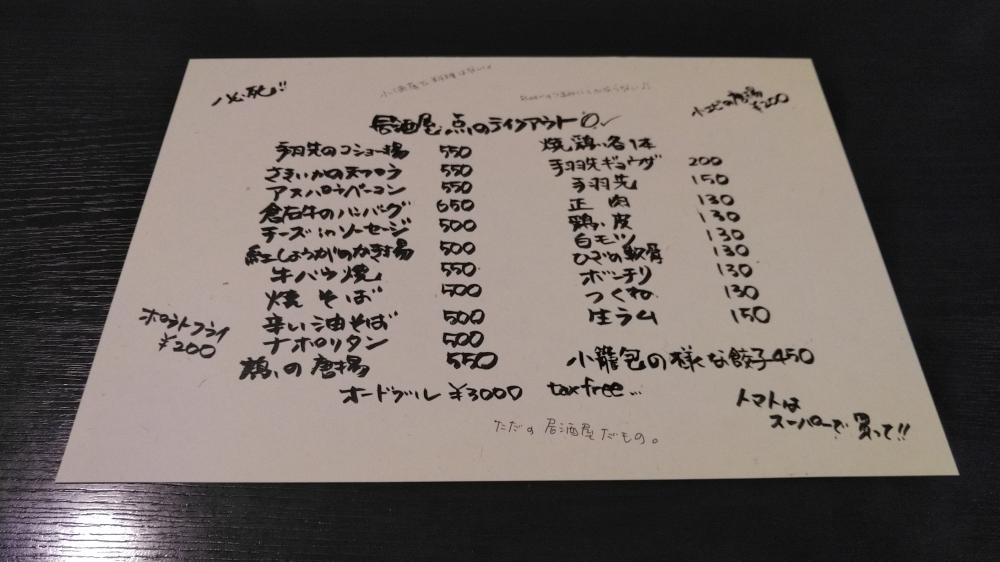 必死!!
小洒落た料理はない
小エビの唐揚 ¥200
居酒屋 点のテイクアウト
手羽先のコショー揚 550
さきいかの天プラ 550
アスパラベーコン 550
倉石牛のハンバグ 650
チーズinソーセージ 500
紅しょうがのかき揚 500
牛バラ焼 550
焼そば 500
辛い油そば 500
ナポリタン 500
鶏の唐揚 550
ポテトフライ
¥200
焼鶏 各1本
手羽先ギョウザ 200
手羽先 150
正肉 130
鶏皮 130
白モツ 130
ひざの軟骨 130
ボンチリ 130
つくね 130
生ラム 150
小籠包の様な餃子 450
オードブル ¥3000 tax free...
トマトは
スーパーで買って!!
ただの居酒屋だもの。